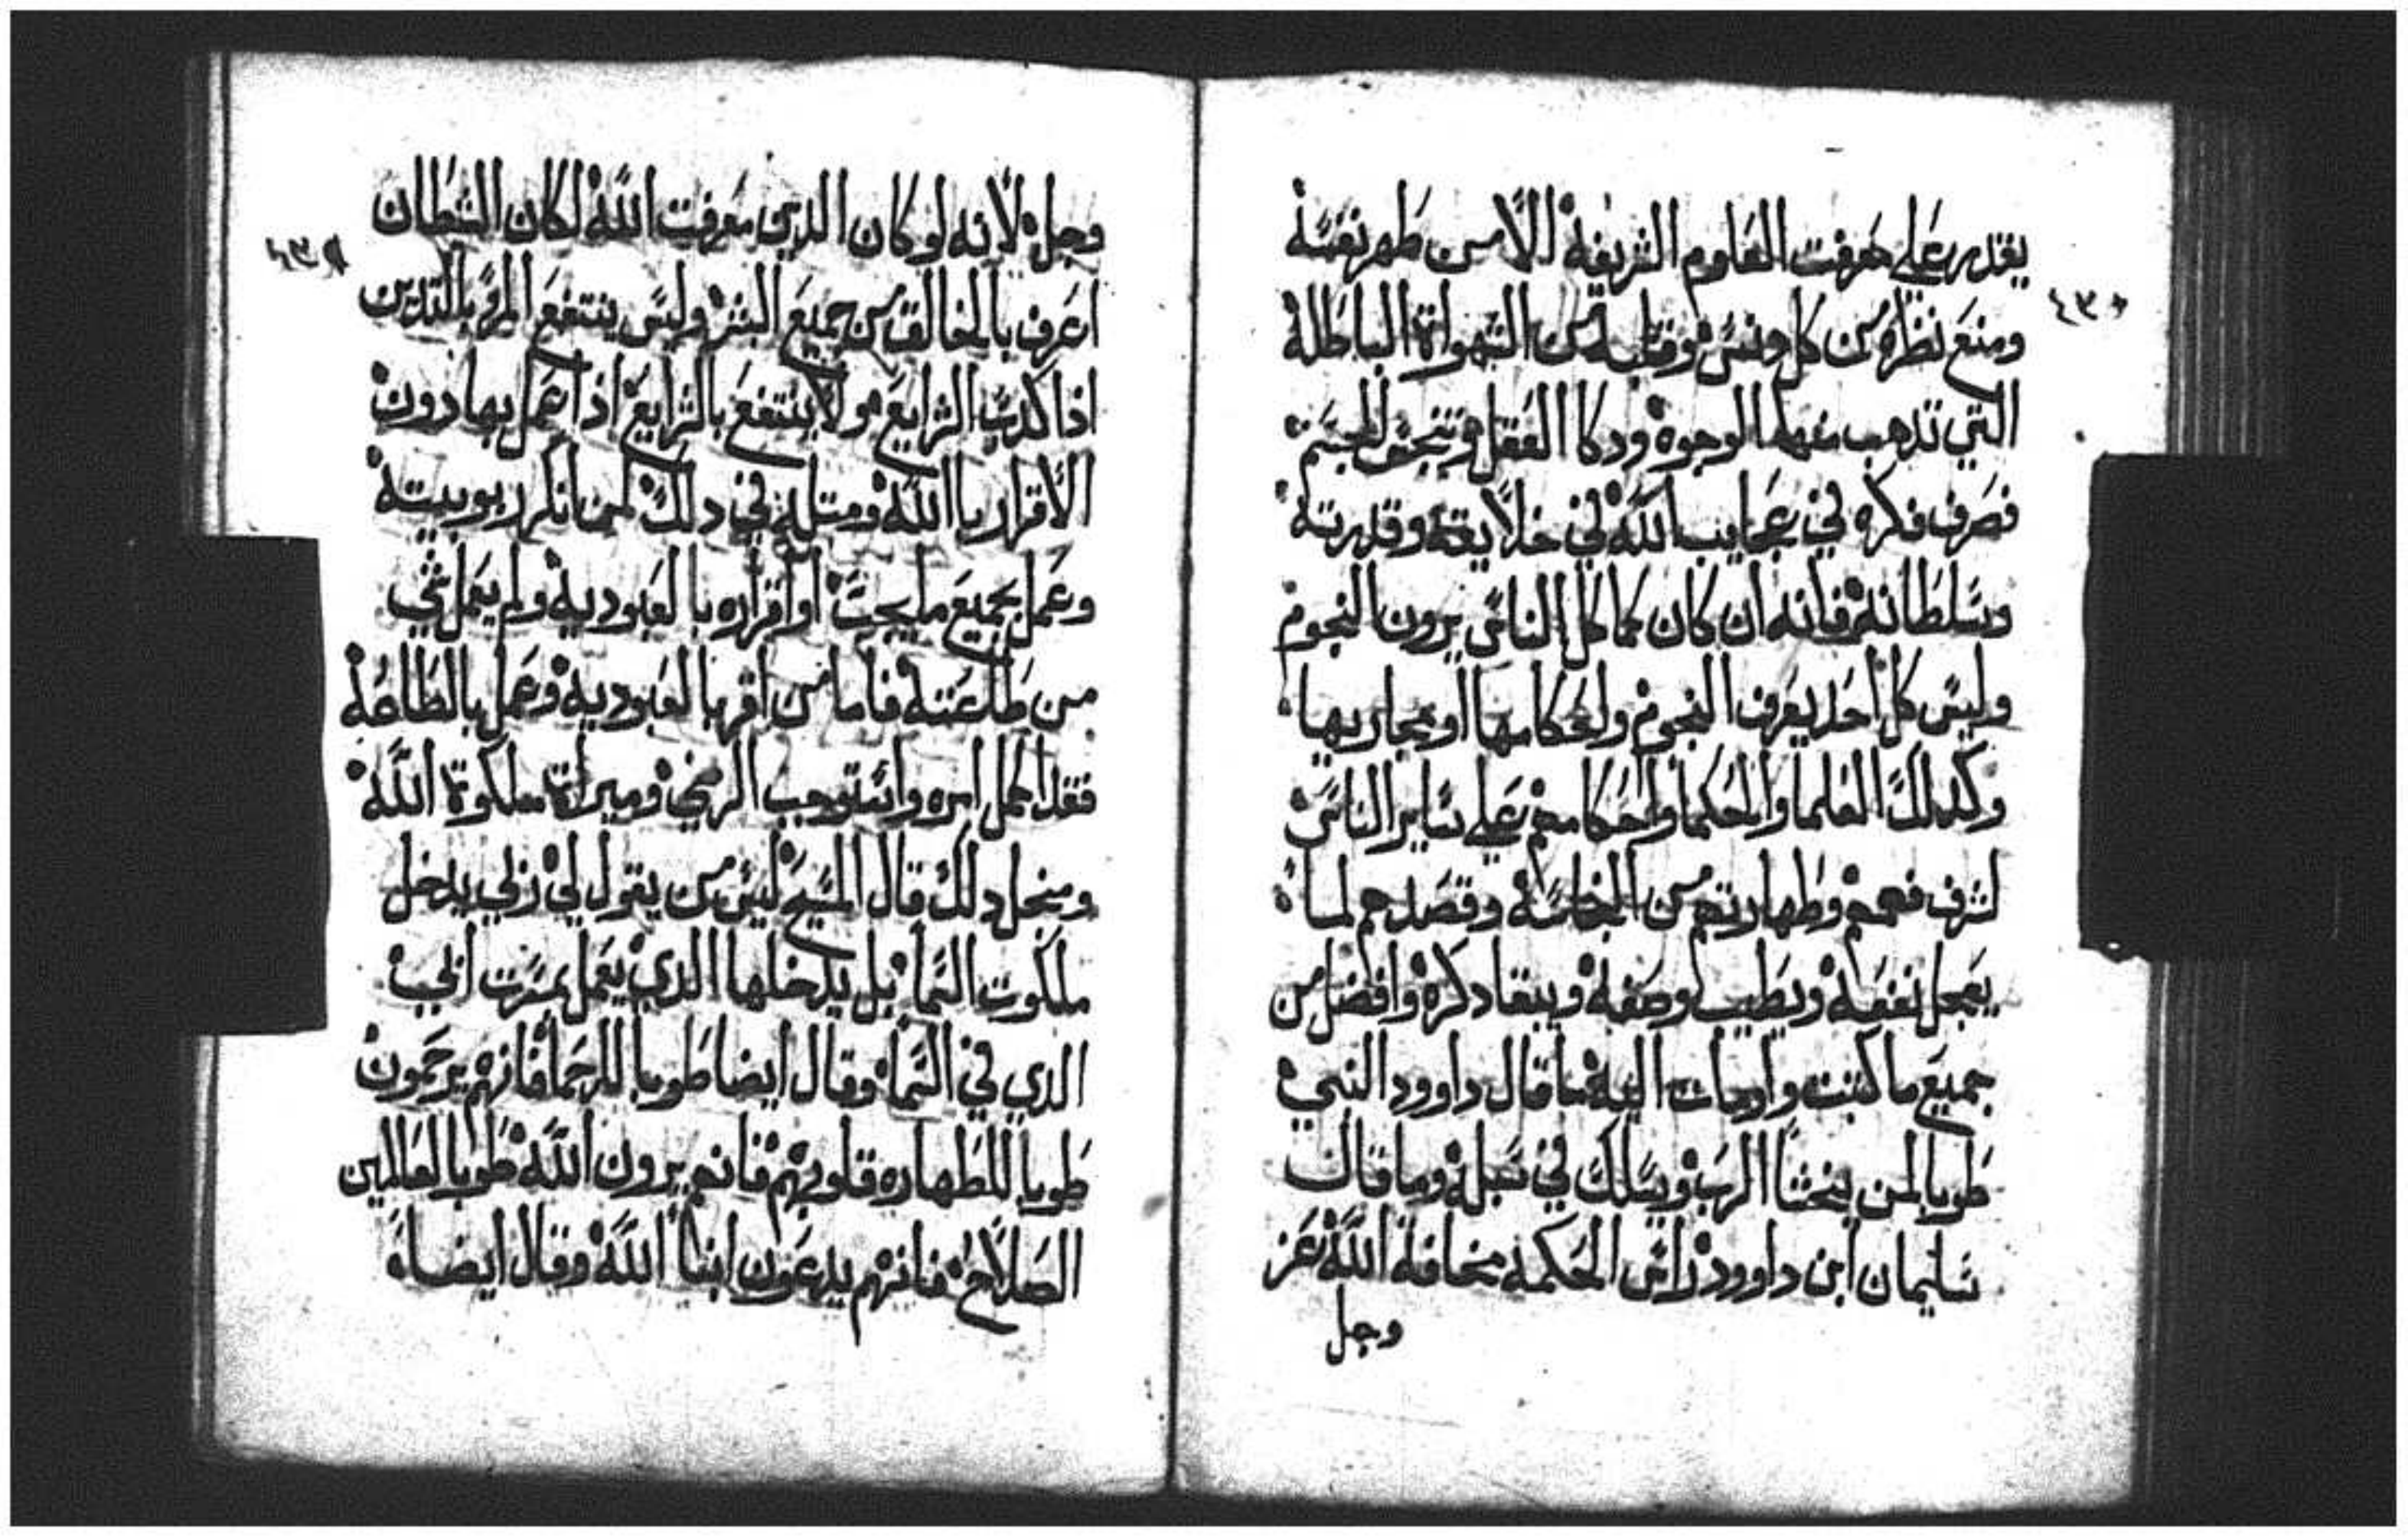 يقدر على معرفت العلوم الشريفة الا من طهر نفسه
٤٣٠
ومنع نظره من كل دنس وقلبه من الشهواة الباطلة
التي تدهب منها الوجوه ودكا العقل وتنجف الجسم
فصرف فكره في عجايب الله في خلايقه وقدرته
وسلطانه فانه ان كان كما كل الناس يرون النجوم
وليس كل احد يعرف النجوم ولحكامها او مجاريها
وكدلك العلما والحكما واحكامهم على ساير الناس
لشرف فهمهم وطهارتهم من النجاسة وقصدهم لما
يعجل نفعه ويطيب وصفه ويبقا دكره وافضل من
جميع ما كتبت واوجات اليه ما قال داوود النبي
طوبا لمن يخشا الرب ويسلك في سبله وما قال
سليمان ابن داوود راس الحكمه مخافة الله عز
وجل
وجل لانه لو كان الدين معرفت الله لكان الشطان
٤٣١
اعرف بالخالق من جميع البشر وليس ينتفع المرو بالتدين
اذا كدب الشرايع ولا ينتفع بالشرايع اذا عمل بها دون
الاقرار بالله ومتله في دلك لمن انكر ربوبيته
وعمل بجميع ما يجب او اقراره بالعبوديه ولم يعمل شي
من طاعته فاما من اقر بالعبوديه وعمل بالطاعة
فقد اكمل امره واستوجب الرضي وميراة ملكوة الله
ومنجل دلك قال المسيح ليس من يقول لي ربي يدخل
ملكوت السما بل يدخلها الدي يعمل بمسرت ابي
الدي في السما وقال ايضا طوبا للرحما فانهم يرحمون
طوبا للطهاره قلوبهم فانهم يرون الله طوبا لفاعلين
الصلاح فانهم يدعون ابنا الله وقال ايضا